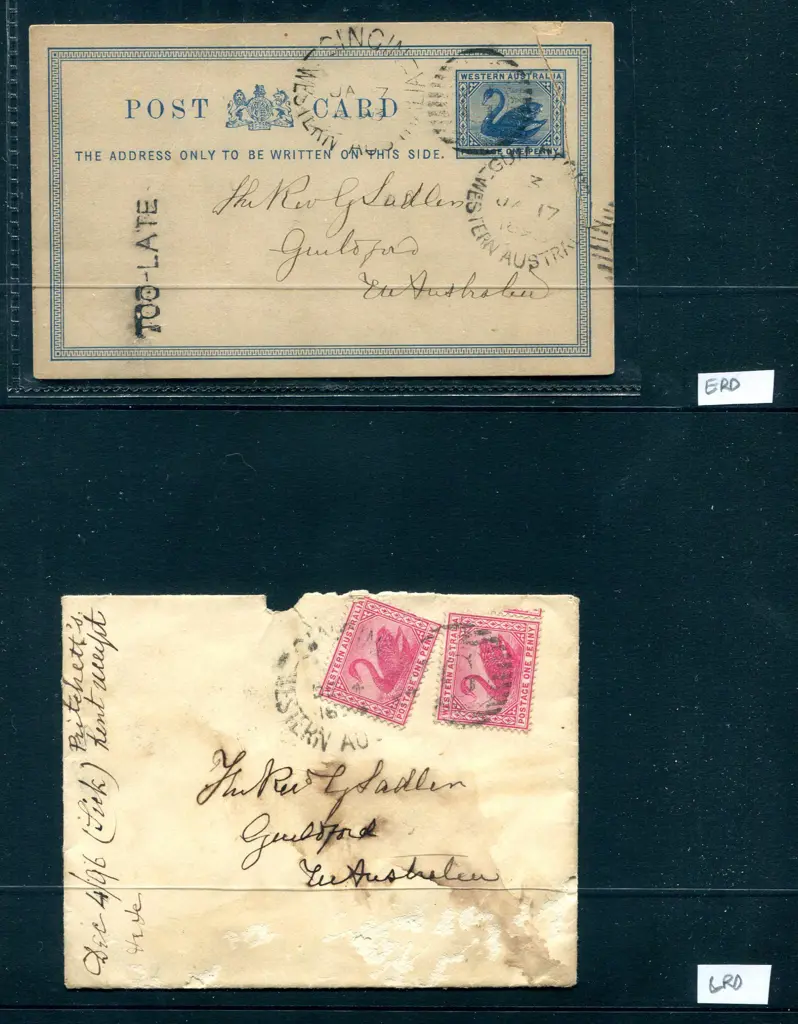 POST CARD
THE ADDRESS ONLY TO BE WRITTEN ON THIS SIDE.
WESTERN AUSTRALIA
POSTAGE ONE PENNY
WESTERN AUSTRALIA
JA 7
WESTERN AUSTRA
JA 17
TOO-LATE
The Rev G Sadlier
Guildford
W Australia
ERD
WESTERN AUSTRALIA
POSTAGE ONE PENNY
WESTERN AUSTRALIA
POSTAGE ONE PENNY
WESTERN AU
The Rev G Sadlier
Guildford
W Australia
Dec 4/96 (Sick) Pritchett's
rent
LRD